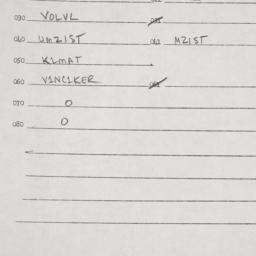 030 VOLVL
040 UMZIST 041 MZIST
050 KLMAT
060 V1NC1KER
070 0
080 0